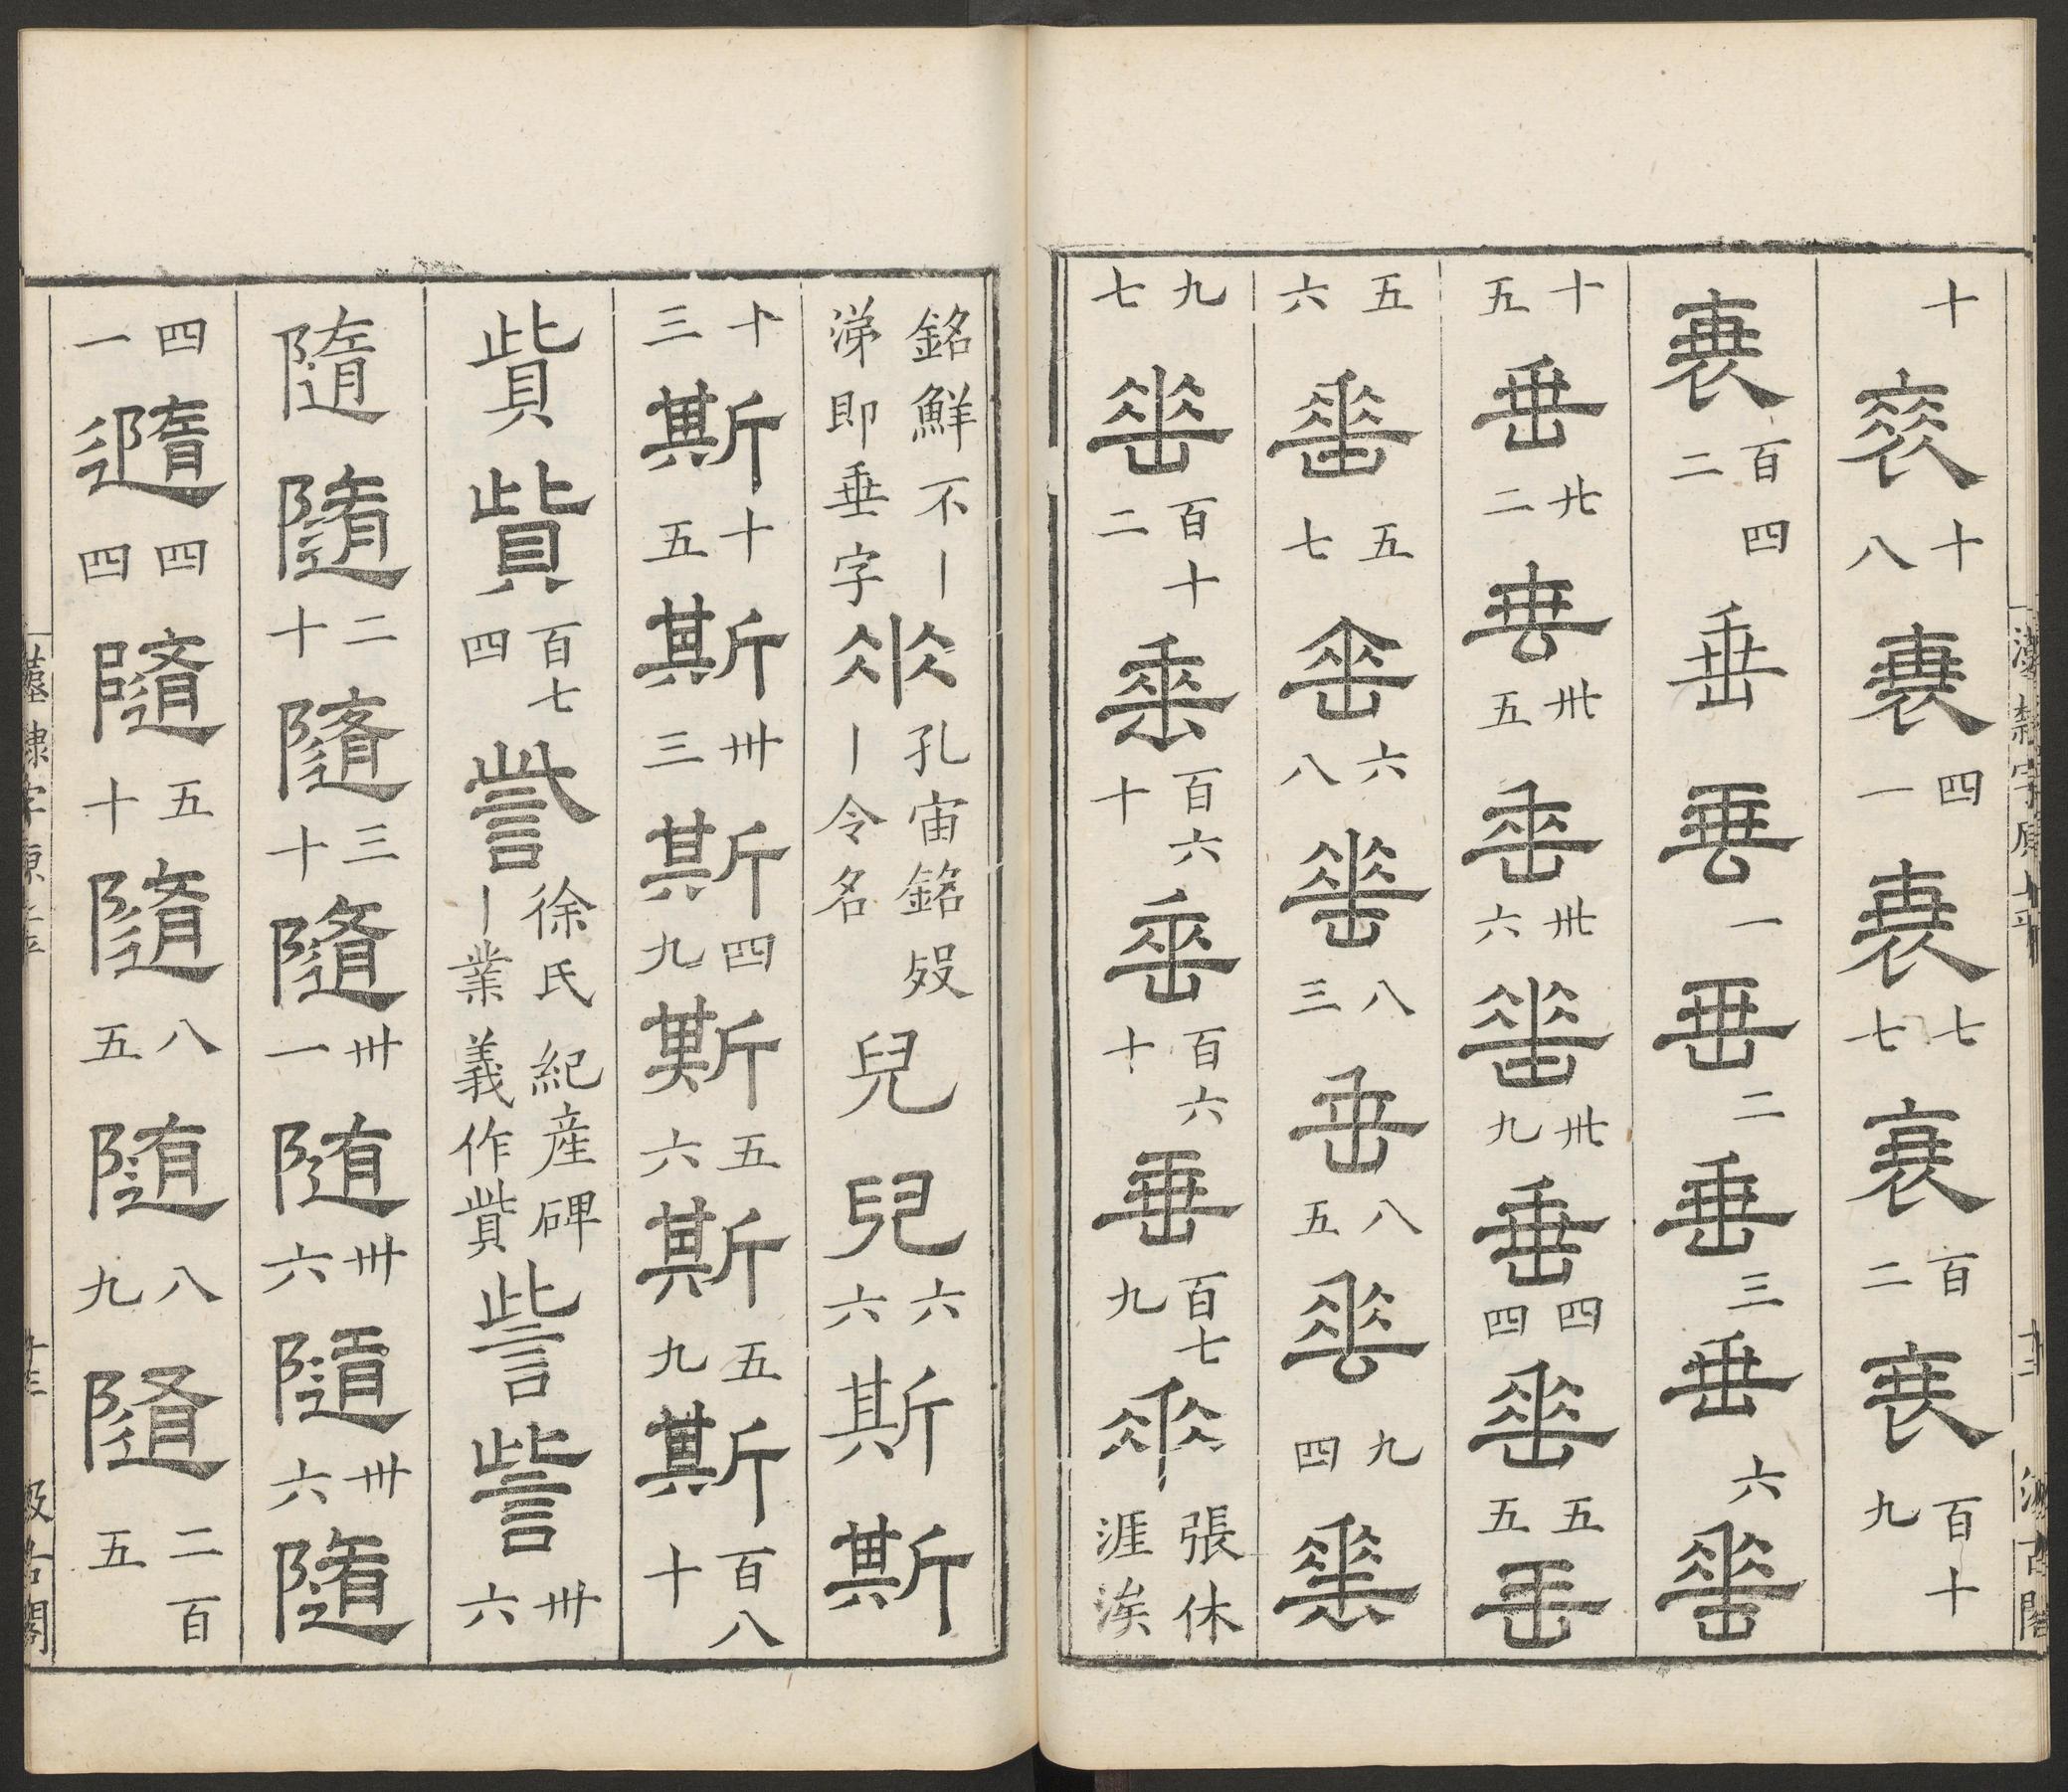 十衰十八衰四一衰七七衰百二衰百十九
衰百四二垂垂一垂二垂三垂六垂
十五垂廿二垂卅五垂卅六垂卅九垂四四垂五五垂
五六垂五七垂六八垂八三垂八五垂九四垂
九七垂百十二垂百六十垂百六十垂百七九垂張休涯涘
銘鮮不丨涕即垂字垂孔宙銘歿丨令名兒兒六六斯斯
十三斯十五斯卅三斯四九斯五六斯五九斯百八十
貲貲百七四訾徐氏紀産碑丨業義作貲訾訾卅六
隨隨二十隨三十隨卅一隨卅六隨卅六隨
四一隨四四隨五十隨八五隨八九隨二百五
漢隸字原
汲古閣